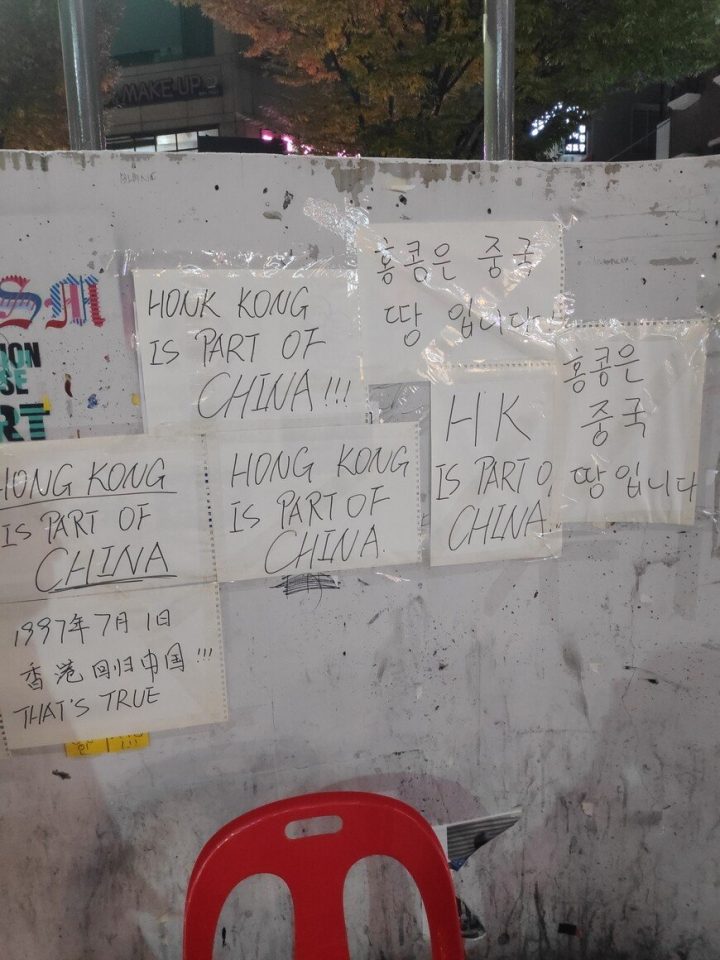 MAKE-UP
HONK KONG
IS PART OF
CHINA!!!
홍콩은 중국
땅 입니다
홍콩은
중국
땅입니다
HK
IS PART O
CHINA
HONG KONG
IS PART OF
CHINA.
HONG KONG
IS PART OF
CHINA
1997年7月1日
香港回归中国!!!
THAT'S TRUE
SM
ION
SE
RT